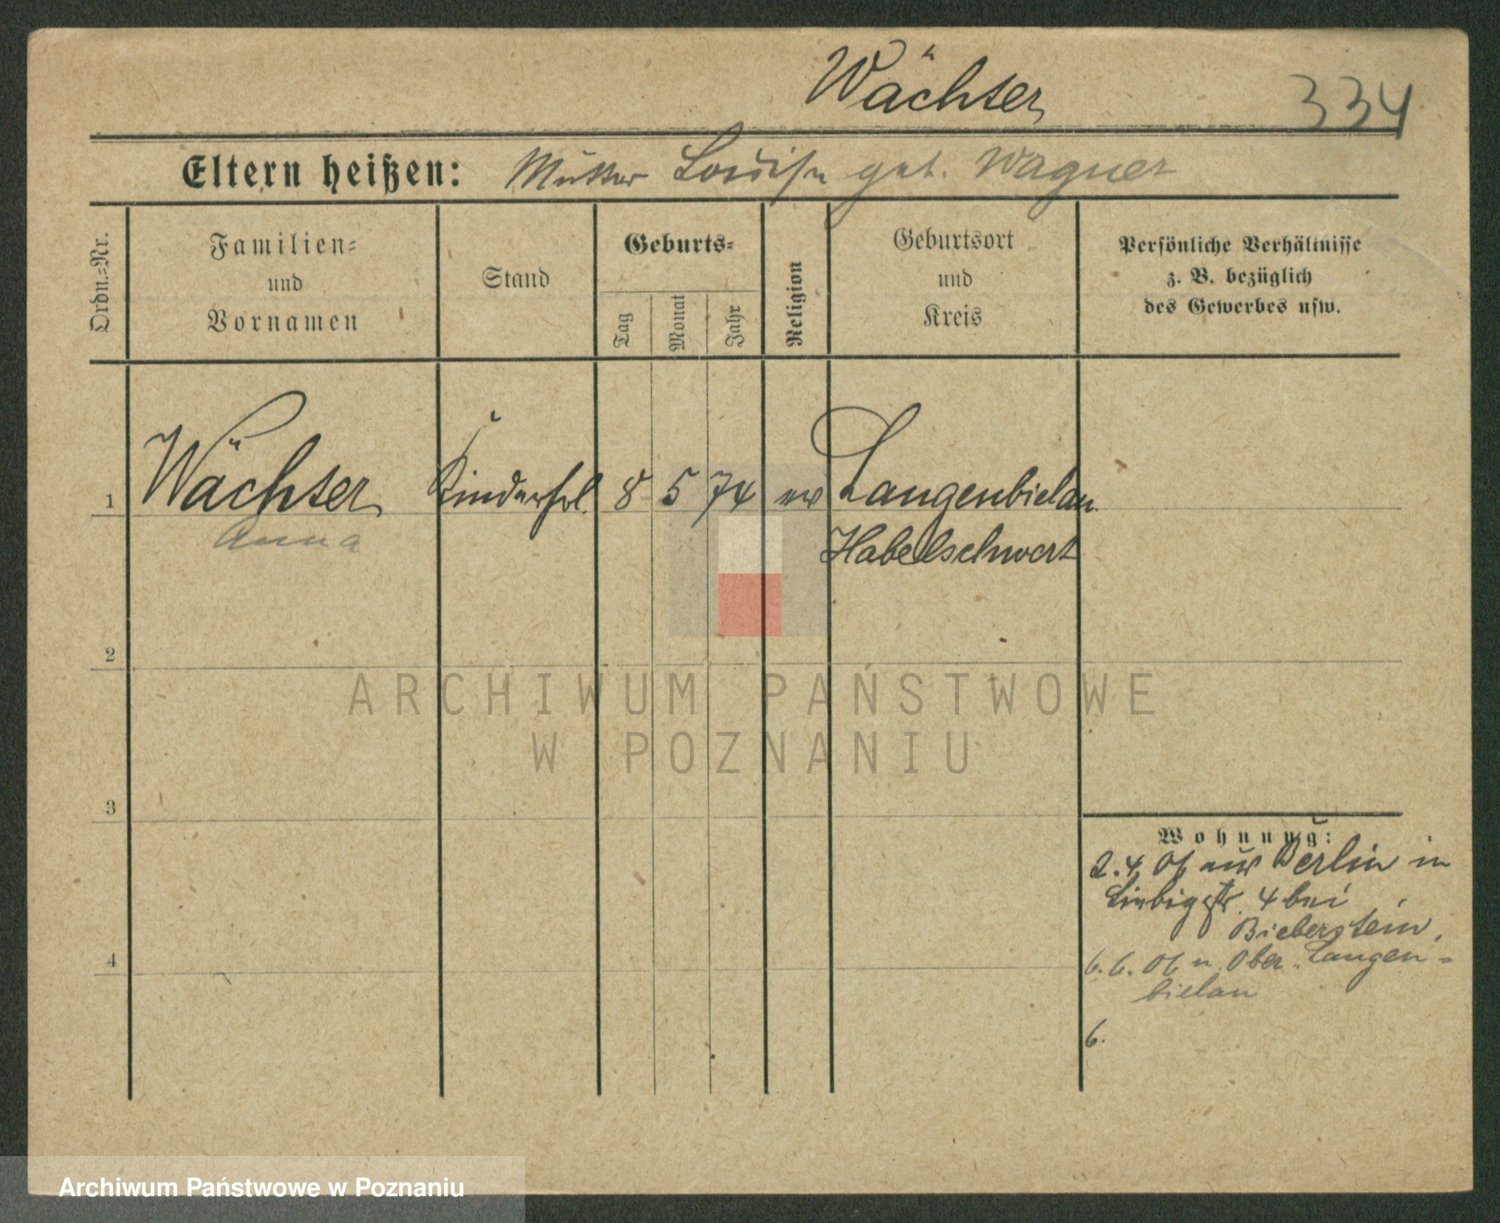 Wächter
334
Eltern heißen: Mutter Louise geb. Wagner
Ordn.=Nr.
Familien=
und
Vornamen
Stand
Geburts=
Tag
Monat
Jahr
Religion
Geburtsort
und
Kreis
Persönliche Verhältnisse
z. B. bezüglich
des Gewerbes usw.
1 Wächter Kinderfrl. 8 5 74 ev Langenbielau
Anna Habelschwert
2
3
4
Wohnung:
2.4.01 aus Berlin in
Liebigstr. 4 bei
Bieberstein.
6.6.01 n. Ober-Langen=
bielau
6.
ARCHIWUM PAŃSTWOWE
W POZNANIU
Archiwum Państwowe w Poznaniu